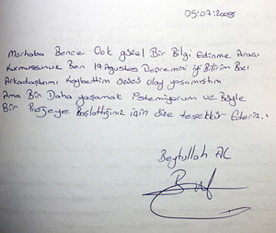 05.07.2008
Merhaba Bence Çok güzel Bir Bilgi Edinme Aracı
Kurmuşsunuz Ben 19 Ağustos Depremini iyi Bilirim Bazı
Arkadaşlarımı Kaybettim olay yaşamıştım
Ama Bir Daha yaşamak istemiyorum ve Böyle
Bir Projeye Başlattığınız için Size teşekkür Ederiz..
Beytullah AÇ